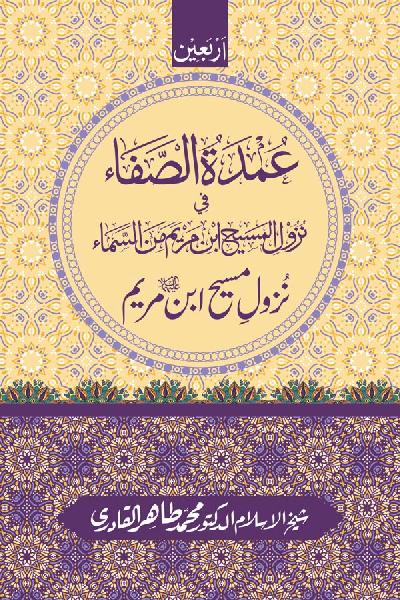 اَربعین
عُمْدَةُ الصَّفَاء
فِي
نُزُولِ الْمَسِيحِ ابْنِ مَرْيَمَ مِنَ السَّمَاء
نُزولِ مسیح ابن مریم علیہما السلام
شیخ الاسلام الدکتور محمد طاہر القادری